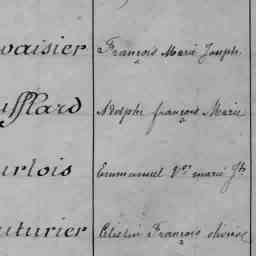 vaisier François Marie Joseph
ufflard Adolphe françois Marie
urlois Emmanuel Vor marie Jh
uturier Célestin François